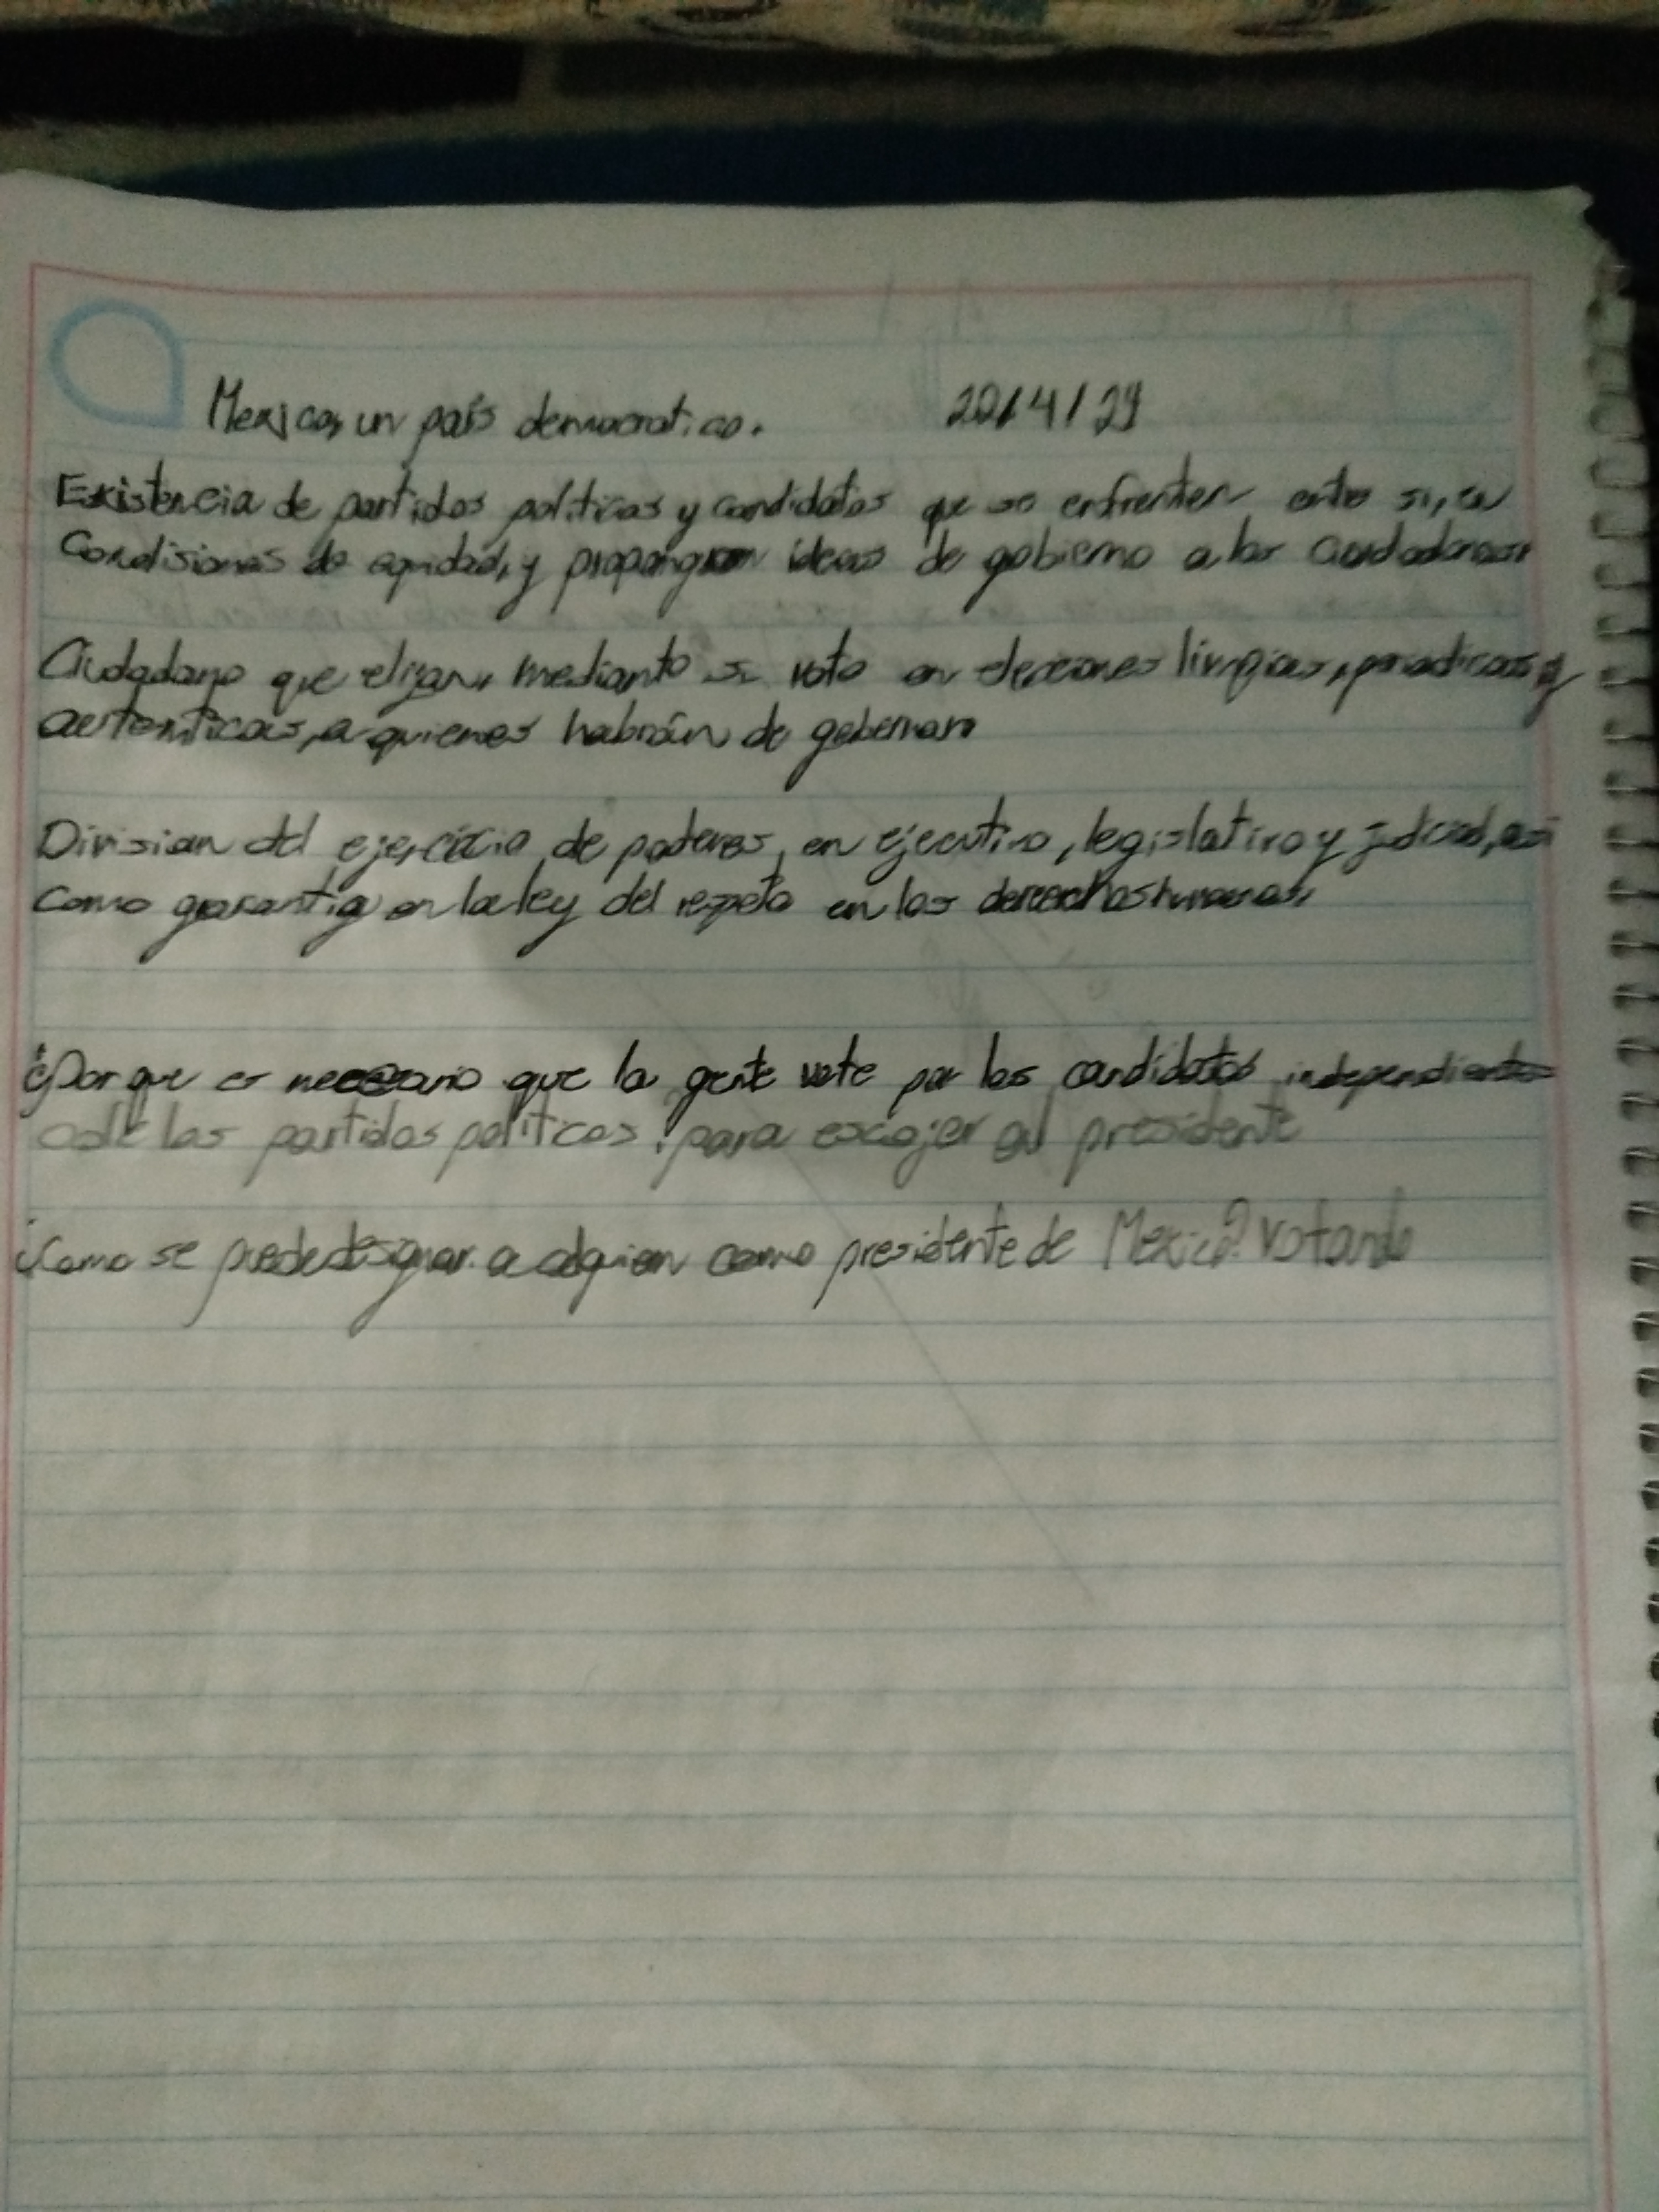 Mexico, un país democratico. 29/4/24
Existencia de partidos politicos y candidatos que se enfrenten entre si, en
Condisiones de equidad, y propongan ideas de gobierno a los ciudadanos.
Ciudadano que elijan, mediante su voto en elecciones limpias, periodicas y
autenticas, a quienes habrán de gobernar
Division del ejercicio, de poderes, en ejecutivo, legislativo y judicial, asi
como garantia en la ley del respeto en los derechos humanos.
¿Por que es necesario que la gente vote por los candidatos independientes
o de los partidos politicos? para escojer al presidente
¿Como se puede designar a alguien como presidente de Mexico? Votando